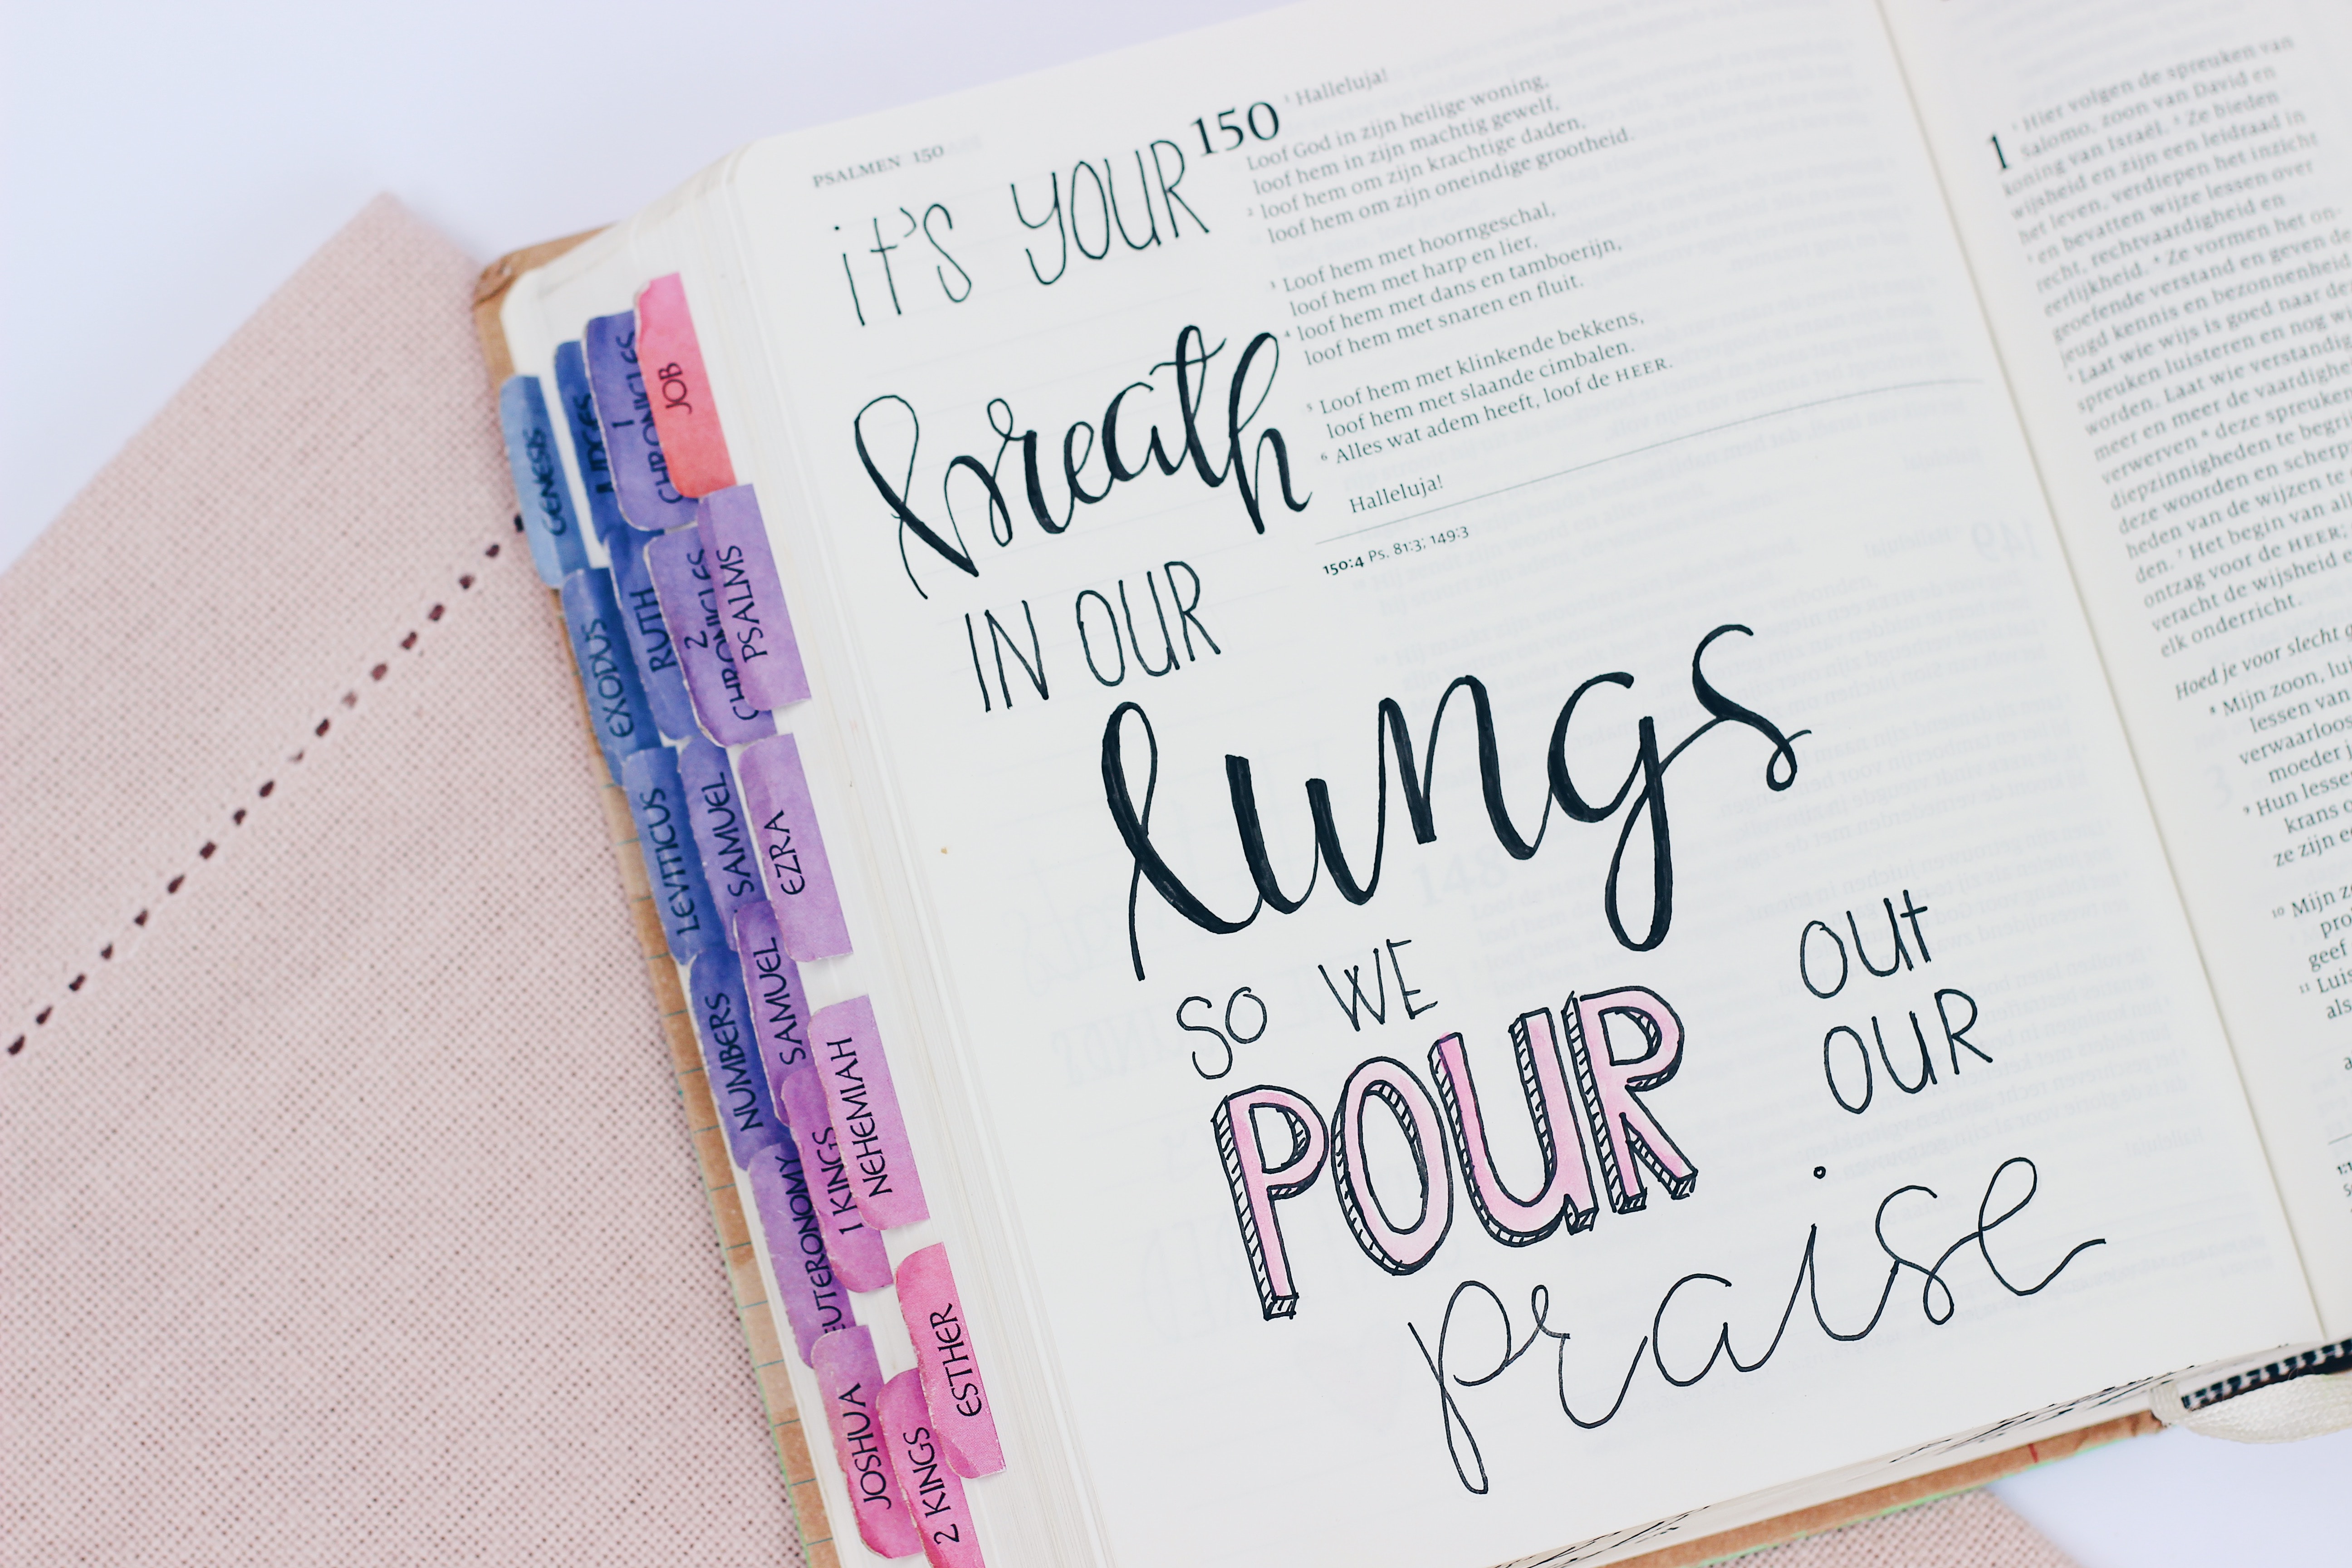 PSALMEN 150
150
¹ Halleluja!
Loof God in zijn heilige woning,
loof hem in zijn machtig gewelf,
² loof hem om zijn krachtige daden,
loof hem om zijn oneindige grootheid.
³ Loof hem met hoorngeschal,
loof hem met harp en lier,
⁴ loof hem met dans en tamboerijn,
loof hem met snaren en fluit.
⁵ Loof hem met klinkende bekkens,
loof hem met slaande cimbalen.
⁶ Alles wat adem heeft, loof de HEER.
Halleluja!
150:4 Ps. 81:3; 149:3
it's YOUR
breath
IN OUR
lungs
SO WE
POUR
OUt
OUR
praise
GENESIS
EXODUS
LEVITICUS
NUMBERS
EUTERONOMY
JOSHUA
JUDGES
RUTH
SAMUEL
SAMUEL
1 KINGS
2 KINGS
1
CHRONICLES
2
CHRONICLES
EZRA
NEHEMIAH
ESTHER
JOB
PSALMS
1
¹ Hier volgen de spreuken van
Salomo, zoon van David en
koning van Israël. ² Ze bieden
wijsheid en zijn een leidraad in
het leven, verdiepen het inzicht
³ en bevatten wijze lessen over
recht, rechtvaardigheid en
eerlijkheid. ⁴ Ze vormen het on-
geoefende verstand en geven de
jeugd kennis en bezonnenheid
⁵ Laat wie wijs is goed naar de
spreuken luisteren en nog
worden. Laat wie verstandig
meer en meer de vaardighe
verwerven ⁶ deze spreuken
diepzinnigheden te begri
deze woorden en scherp
heden van de wijzen te
den. ⁷ Het begin van
ontzag voor de HEER.
veracht de wijsheid
elk onderricht.
Hoed je voor slecht
⁸ Mijn zoon,
lessen van
verwaarloos
moeder
⁹ Hun lesse
krans
ze zijn
¹⁰ Mijn
geef
¹¹ Luis
als